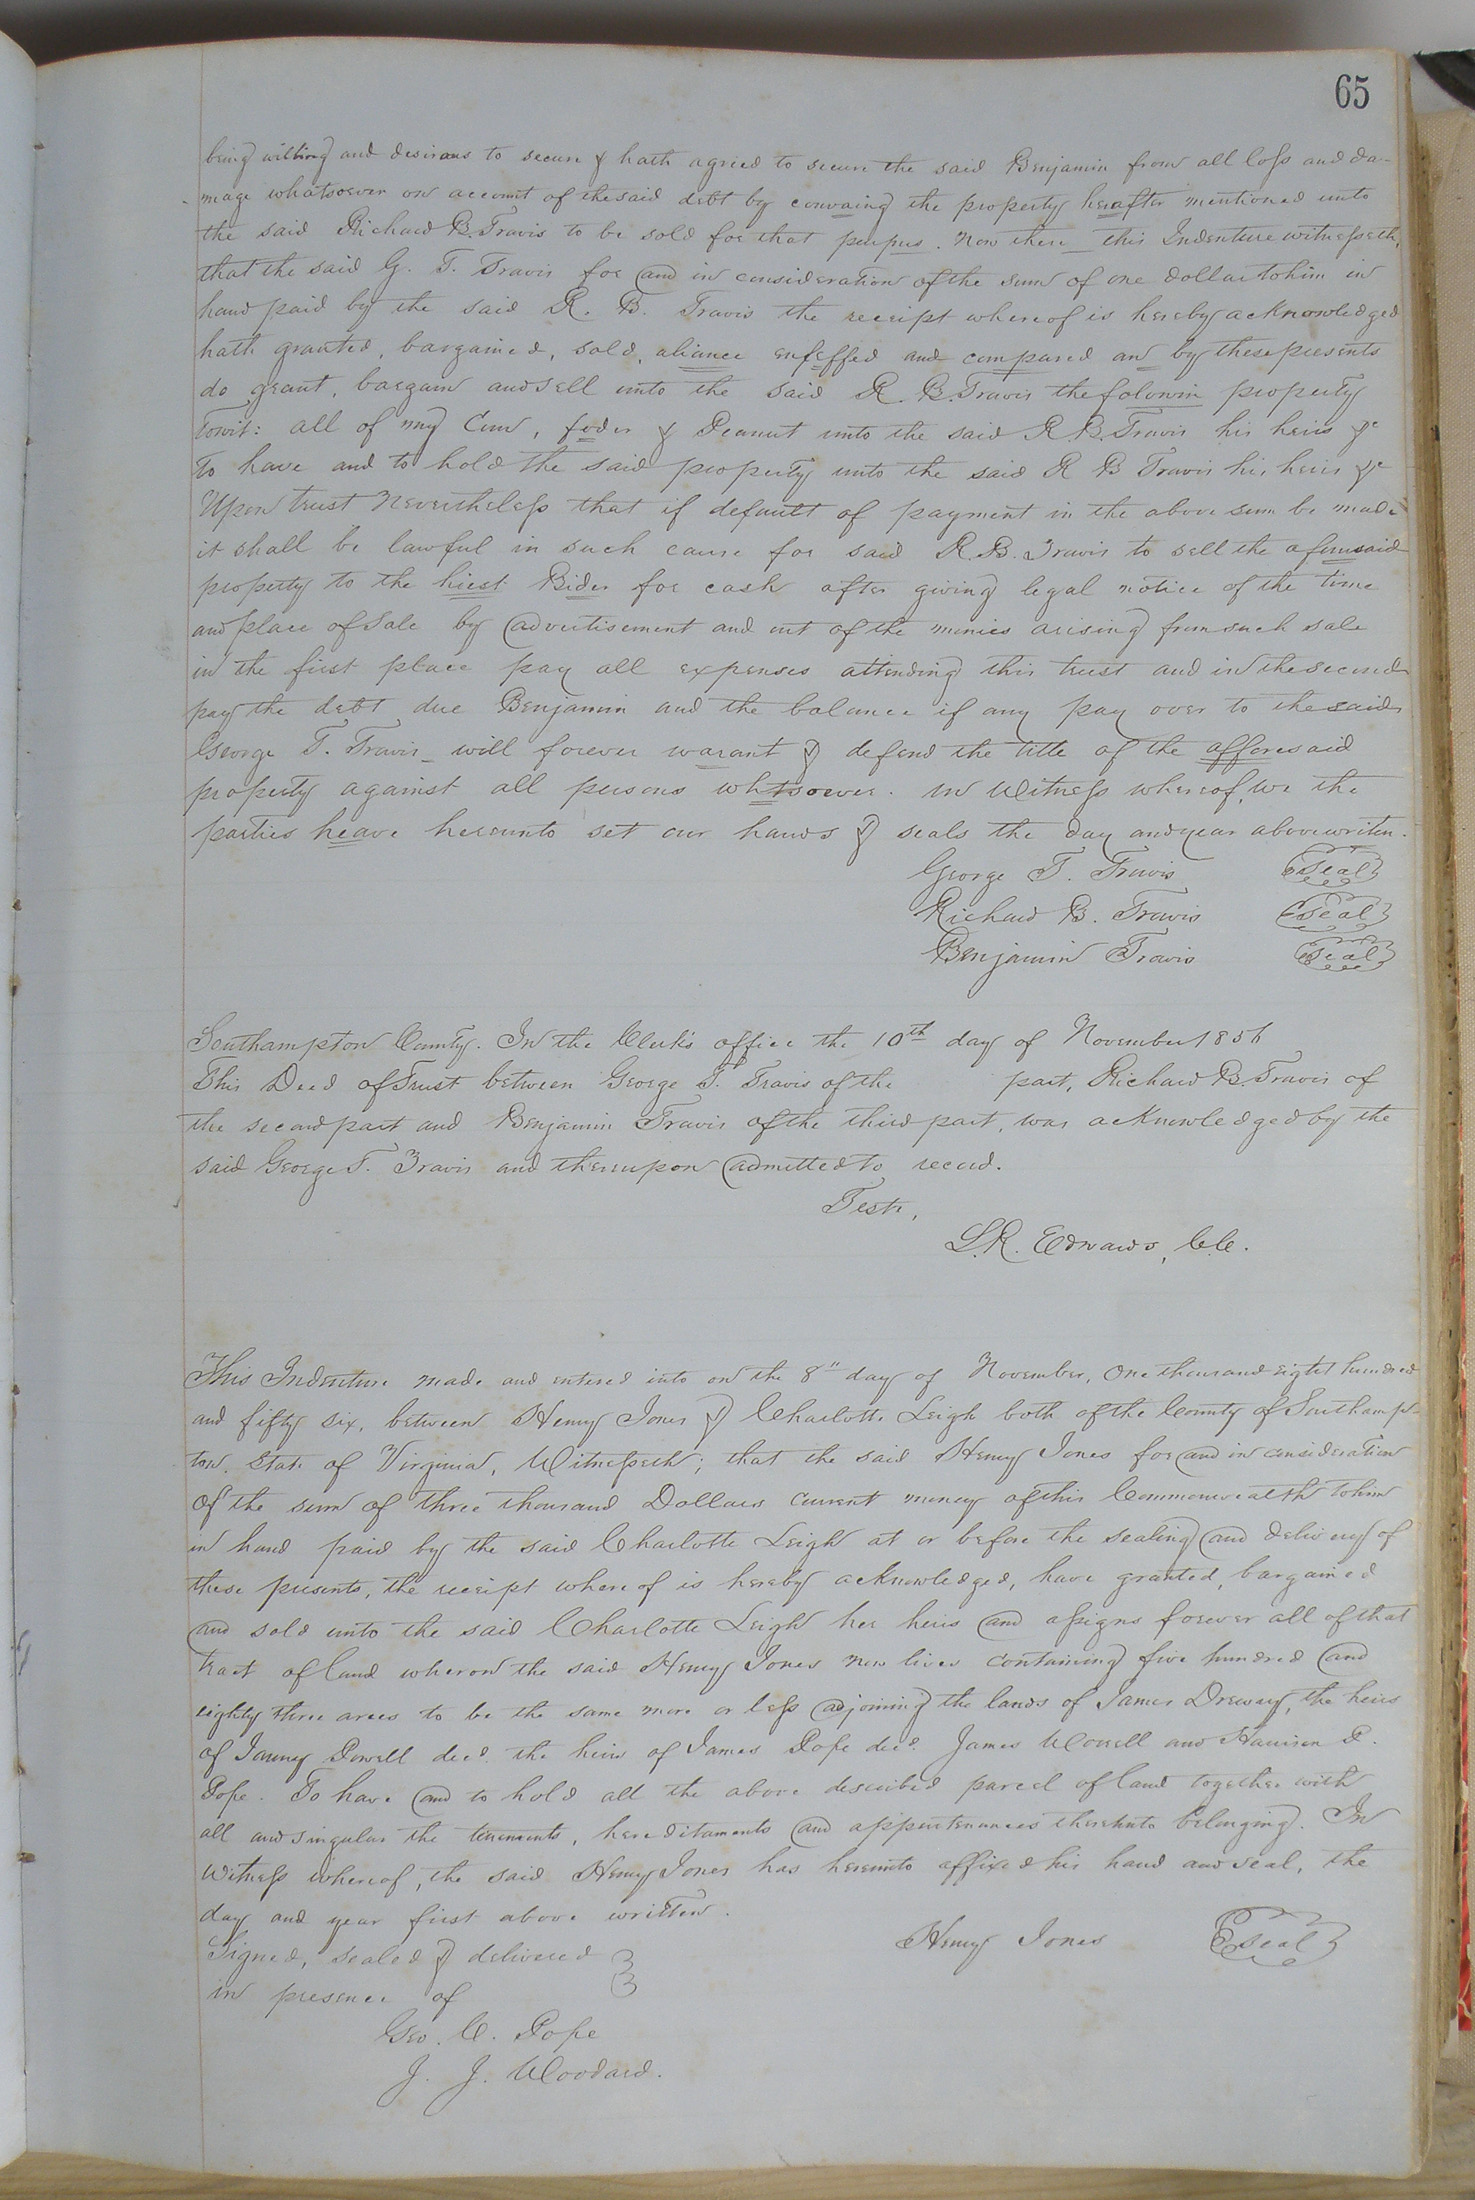 65
being willing and desirous to secure & hath agried to secure the said Benjamin from all loss and da-
mage whatsoever on account of the said debt by convaing the property herafter mentioned unto
the said Richard B. Travis to be sold for that purpus. Now there this Indenture witnesseth,
that the said G. T. Travis for and in consideration of the sum of one dollar to him in
hand paid by the said R. B. Travis the receipt whereof is hereby acknowledged
hath granted, bargained, sold, aliance enfeffed and compared an by these presents
do grant, bargain and sell unto the said R. B. Travis the folowin property
Towit: all of my Corn, foder & Peanut unto the said R B. Travis his heirs &c
To have and to hold the said property unto the said R B Travis his heirs &c
Upon trust Nevertheless that if default of payment in the above sum be made
it shall be lawful in such cause for said R. B. Travis to sell the aforusaid
property to the hiest Bider for cash after giving legal notice of the time
and place of Sale by advertisement and out of the monies arising from such sale
in the first place pay all expenses attending this trust and in the second
pay the debt due Benjamin and the balance if any pay over to the said
George T. Travis_ will forever warant & defend the title of the afforesaid
property against all persons whtsoever. In Witness whereof, we the
parties heave hereunto set our hands & seals the day and year above writen.
George T. Travis Seal
Richard B. Travis Seal
Benjamin Travis Seal
Southampton County. In the Clerk's office the 10th day of November 1856
This Deed of Trust between George T. Travis of the part, Richard B. Travis of
the second part and Benjamin Travis of the third part, was acknowledged by the
said George T. Travis and thereupon admitted to record.
Teste,
L. R. Edwards, C.C.
This Indenture made and entered into on the 8" day of November, One thousand eight hundred
and fifty six, between Henry Jones & Charlotte Leigh both of the County of Southamp-
ton State of Virginia, Witnesseth; that the said Henry Jones for and in consideration
of the sum of three thousand Dollars current money of this Commonwealth to him
in hand paid by the said Charlotte Leigh at or before the sealing and delivery of
these presents, the receipt whereof is hereby acknowledged, have granted, bargained
and sold unto the said Charlotte Leigh her heirs and assigns forever all of that
tract of land wheron the said Henry Jones now lives containing five hundred and
eighty three acres to be the same more or less adjoining the lands of James Drewery, the heirs
of Powell decd. the heirs of James Pope decd. James Worrell and Harrison P.
Pope. To have and to hold all the above described parcel of land together with
all and singular the tenements, hereditaments and appurtenances thereunto belonging. In
Witness whereof, the said Henry Jones has hereunto affixed his hand and seal, the
day and year first above written.
Henry Jones Seal
Signed, sealed & delivered
in presence of
Geo. C. Pope
J. J. Woodard.